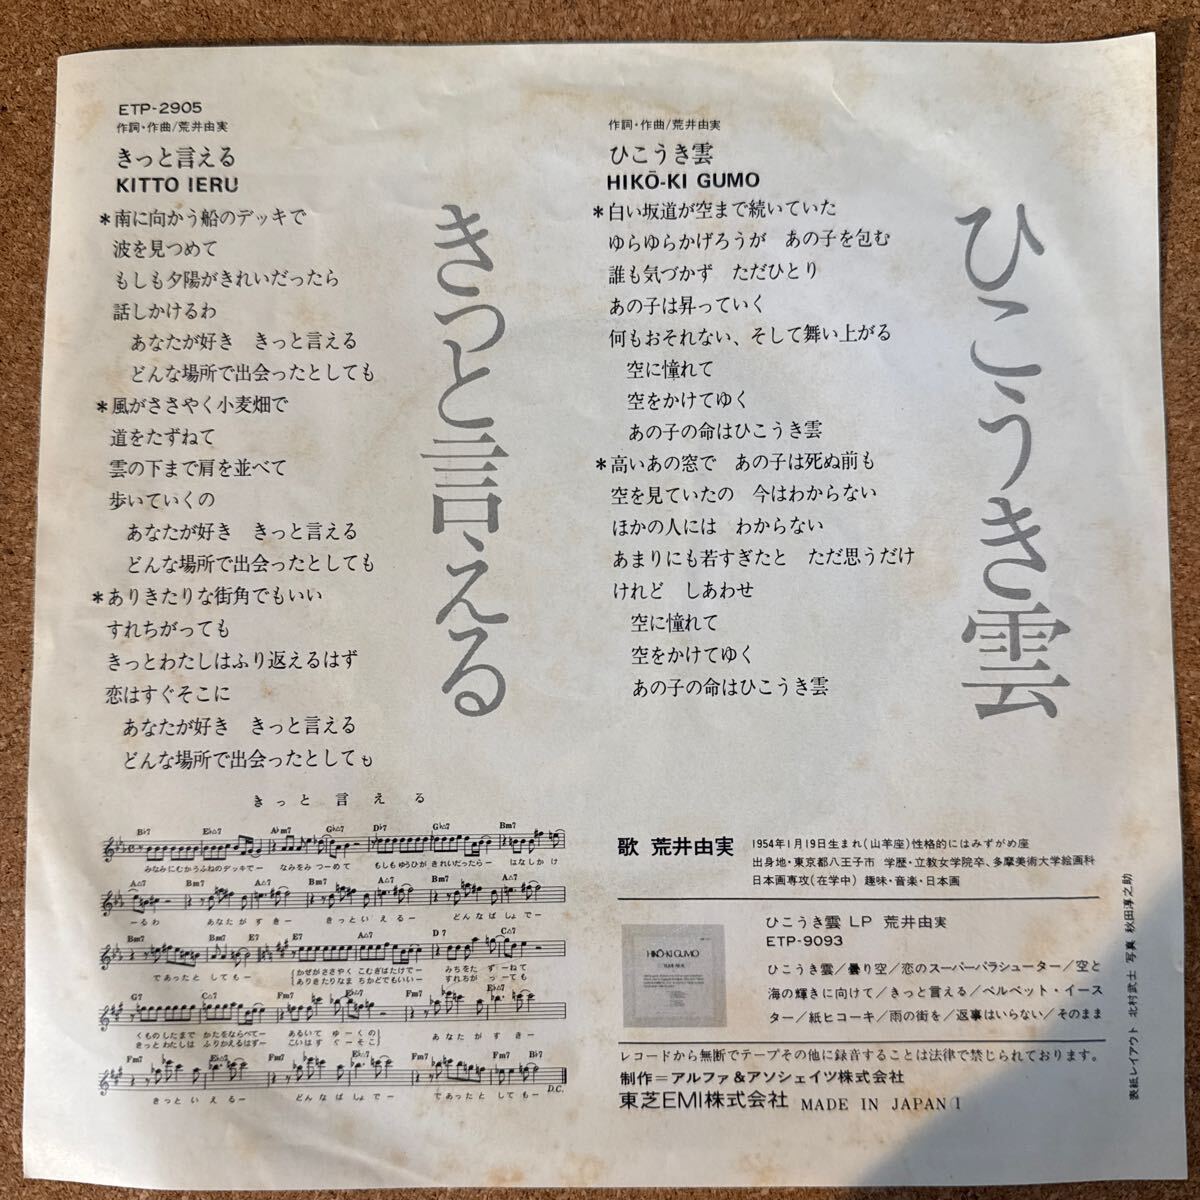 ETP-2905
作詞・作曲/荒井由実
きっと言える
KITTO IERU
*南に向かう船のデッキで
波を見つめて
もしも夕陽がきれいだったら
話しかけるわ
あなたが好き　きっと言える
どんな場所で出会ったとしても
*風がささやく小麦畑で
道をたずねて
雲の下まで肩を並べて
歩いていくの
あなたが好き　きっと言える
どんな場所で出会ったとしても
*ありきたりな街角でもいい
すれちがっても
きっとわたしはふり返えるはず
恋はすぐそこに
あなたが好き　きっと言える
どんな場所で出会ったとしても
きっと言える
作詞・作曲/荒井由実
ひこうき雲
HIKŌ-KI GUMO
*白い坂道が空まで続いていた
ゆらゆらかげろうが　あの子を包む
誰も気づかず　ただひとり
あの子は昇っていく
何もおそれない、そして舞い上がる
空に憧れて
空をかけてゆく
あの子の命はひこうき雲
*高いあの窓で　あの子は死ぬ前も
空を見ていたの　今はわからない
ほかの人には　わからない
あまりにも若すぎたと　ただ思うだけ
けれど　しあわせ
空に憧れて
空をかけてゆく
あの子の命はひこうき雲
ひこうき雲
きっと言える
みなみにむかうふねのデッキでー　なみをみつーめて　もしもゆうひがきれいだったらー　はなしかけ
ーるわ　あなたがすきー　きっといえるー　どんなばしょでー
であったとしてもー　かぜがささやくこむぎばたけでー　みちをたずーねて
ありきたりなまちかどでもいいー　すれちがーっても
くものしたまでかたをならべてー　あるいてゆーくの　あなたがすきー
きっとわたしはふりかえるはずー　こいはすぐーそこ
きっといえるー　どんなばしょでー　であったとしてもー
D.C.
歌 荒井由実
1954年1月19日生まれ(山羊座)性格的にはみずがめ座
出身地・東京都八王子市　学歴・立教女学院卒、多摩美術大学絵画科
日本画専攻(在学中)　趣味・音楽・日本画
HIKŌ-KI GUMO
ひこうき雲 LP 荒井由実
ETP-9093
ひこうき雲/曇り空/恋のスーパーパラシューター/空と
海の輝きに向けて/きっと言える/ベルベット・イース
ター/紙ヒコーキ/雨の街を/返事はいらない/そのまま
レコードから無断でテープその他に録音することは法律で禁じられております。
制作＝アルファ&アソシェイツ株式会社
東芝EMI株式会社 MADE IN JAPAN/I
表紙レイアウト 北村武士 写真 秋田淳之助